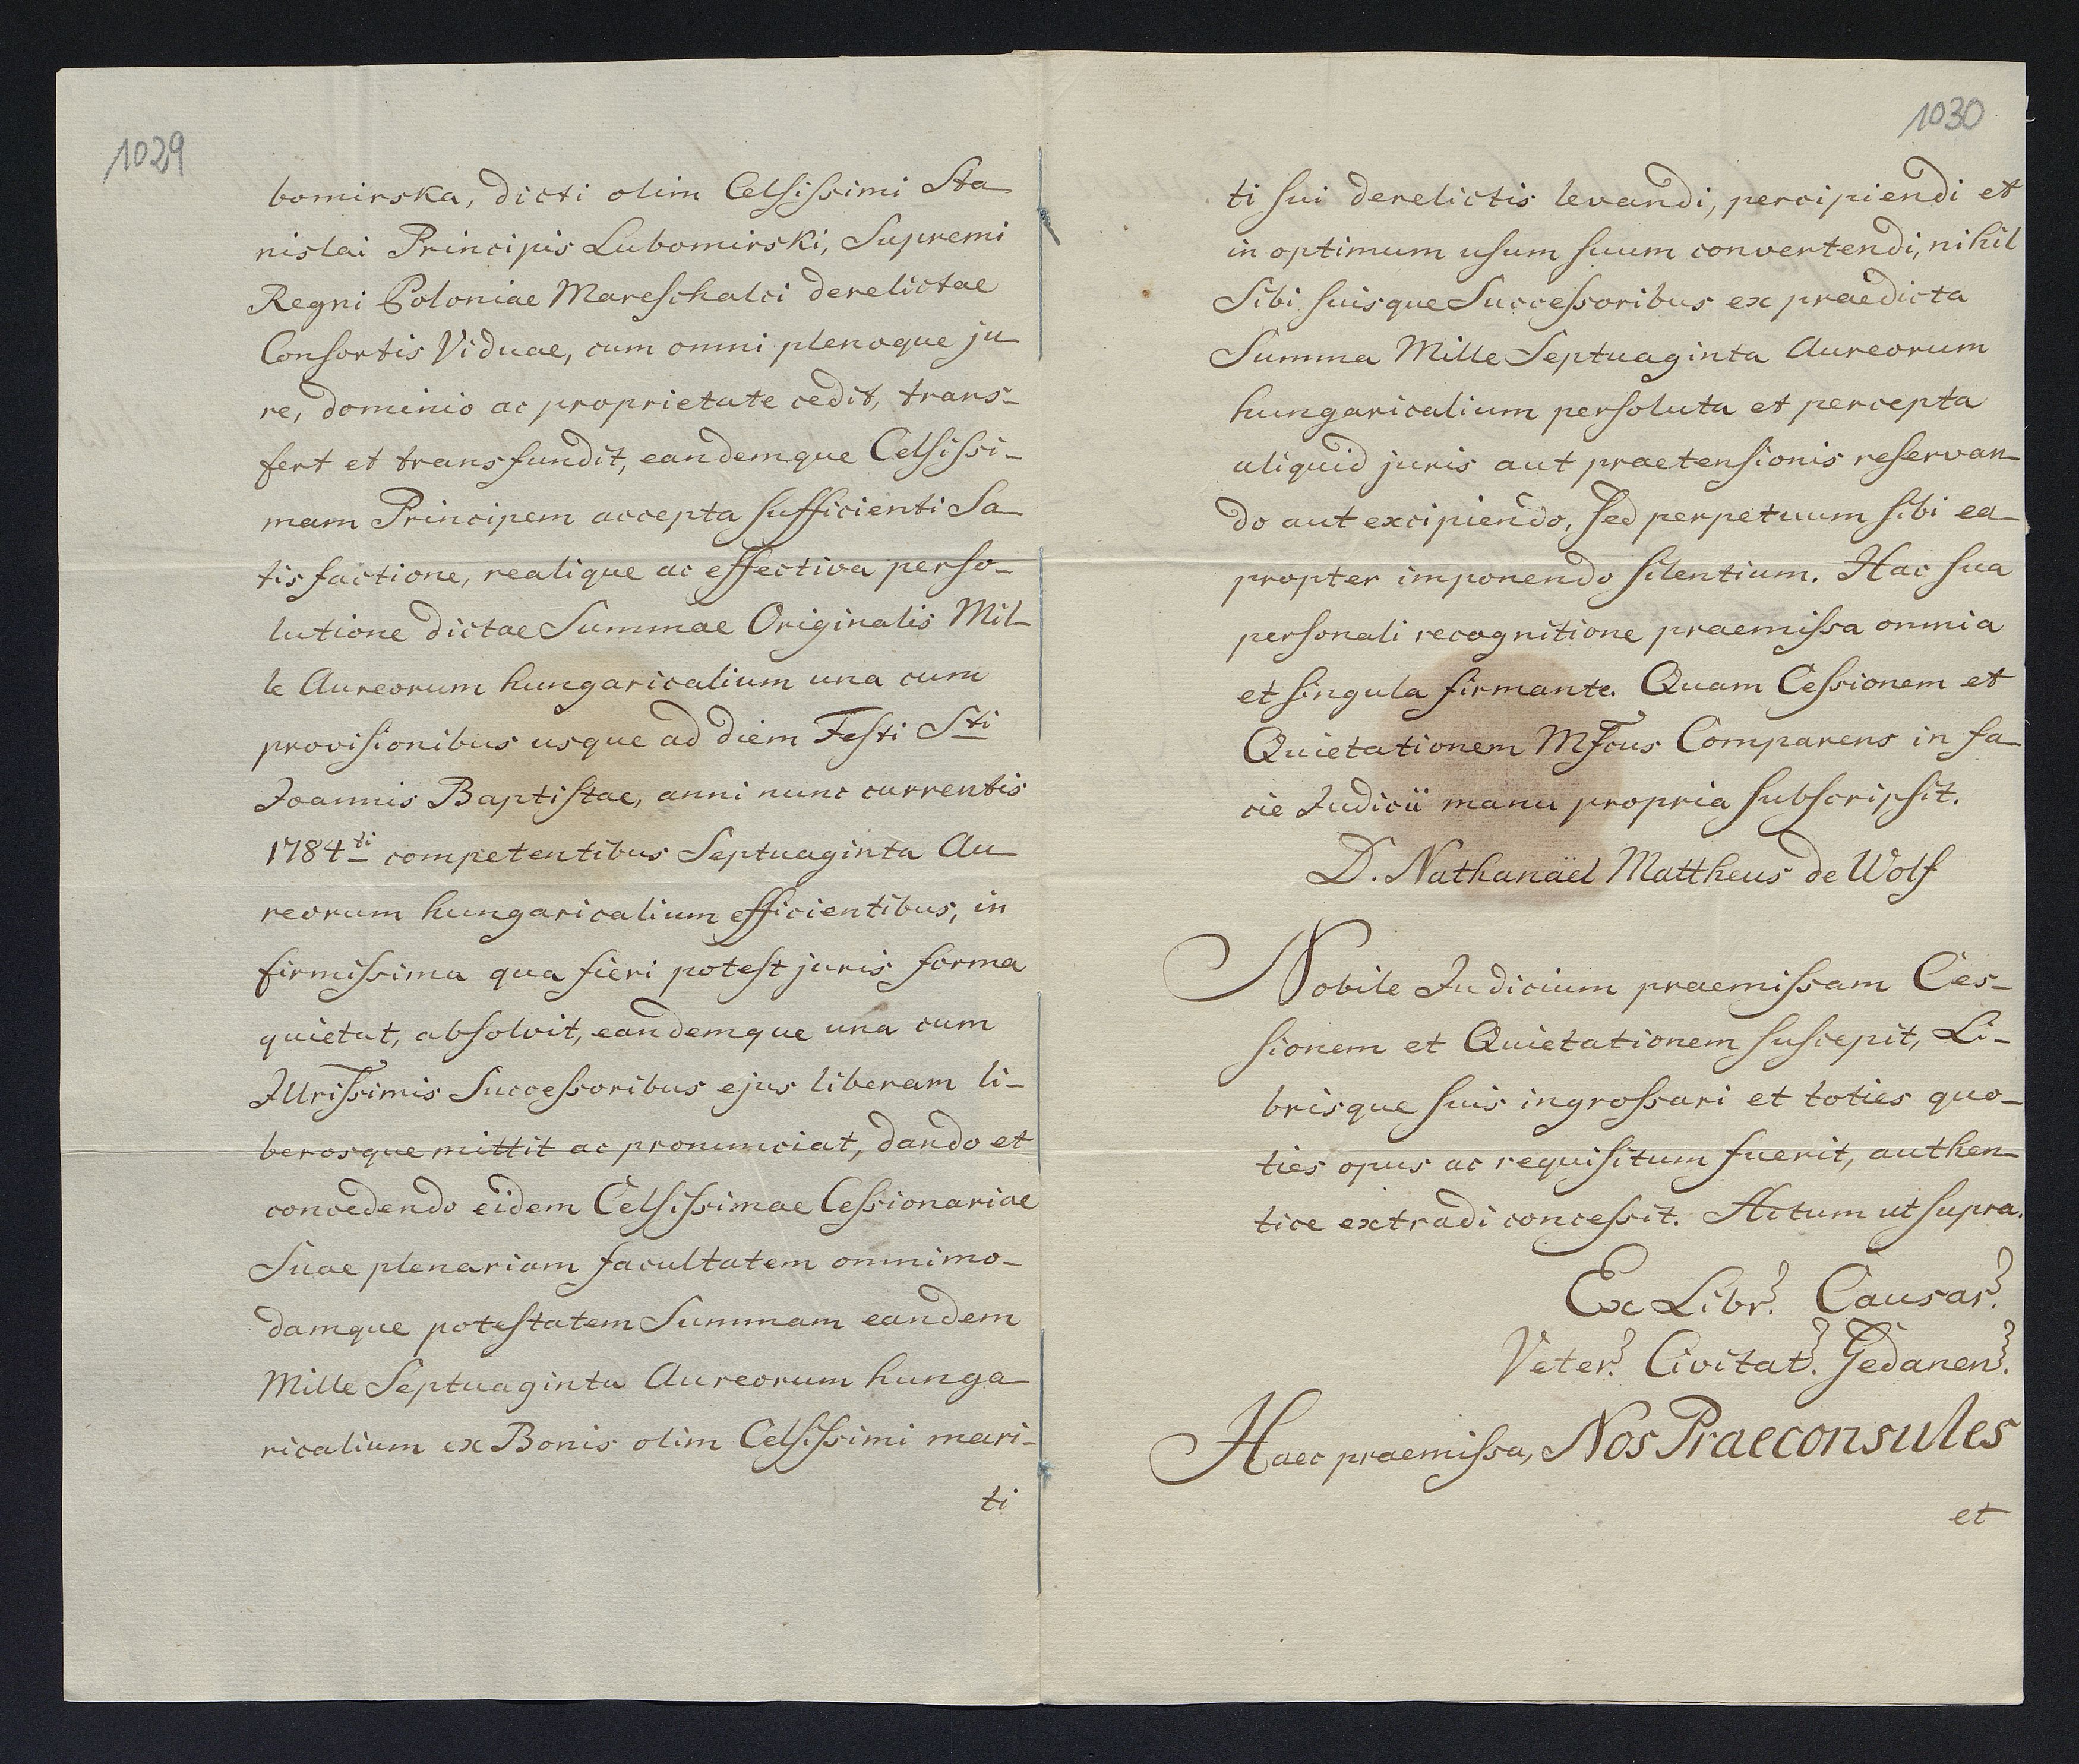 1029
bomirska, dicti olim Celsissimi Sta-
nislai Principis Lubomirski, Supremi
Regni Poloniae Mareschalci derelictae
Consortis Viduae, cum omni plenoque ju-
re, dominio ac proprietate cedit, trans-
fert et transfundit, eandemque Celsissi-
mam Principem accepta sufficienti Sa-
tisfactione, realique ac effectiva perso-
lutione dictae Summae Originalis Mil-
le Aureorum hungaricalium una cum
provisionibus usque ad diem Festi Sti
Joannis Baptistae, anni nunc currentis
1784ti competentibus Septuaginta Au-
reorum hungaricalium efficientibus, in
firmissima qua fieri potest juris forma
quietat, absolvit, eandemque una cum
Illrissimis Successoribus ejus liberam li-
berosque mittit ac pronunciat, dando et
concedendo eidem Celsissimae Cessionariae
Suae plenariam facultatem omnimo-
damque potestatem Summam eandem
Mille Septuaginta Aureorum hunga-
ricalium ex Bonis olim Celsissimi mari-
ti
1030
ti sui derelictis levandi, percipiendi et
in optimum usum suum convertendi, nihil
Sibi suisque Successoribus ex praedicta
Summa Mille Septuaginta Aureorum
hungaricalium persoluta et percepta
aliquid juris aut praetensionis reservan-
do aut excipiendo, sed perpetuum sibi ea-
propter imponendo silentium. Hac sua
personali recognitione praemissa omnia
et singula firmante. Quam Cessionem et
Quietationem Mfcus Comparens in fa-
cie Judicii manu propria subscripsit.
D. Nathanäel Mattheus de Wolf
Nobile Judicium praemissam Ces-
sionem et Quietationem suscepit, Li-
brisque suis ingrossari et toties quo-
ties opus ac requisitum fuerit, authen-
tice extradi concessit. Actum ut supra.
Ex Libr. Causar.
Veter. Civitat. Gedanen.
Haec praemissa, Nos Praeconsules
et